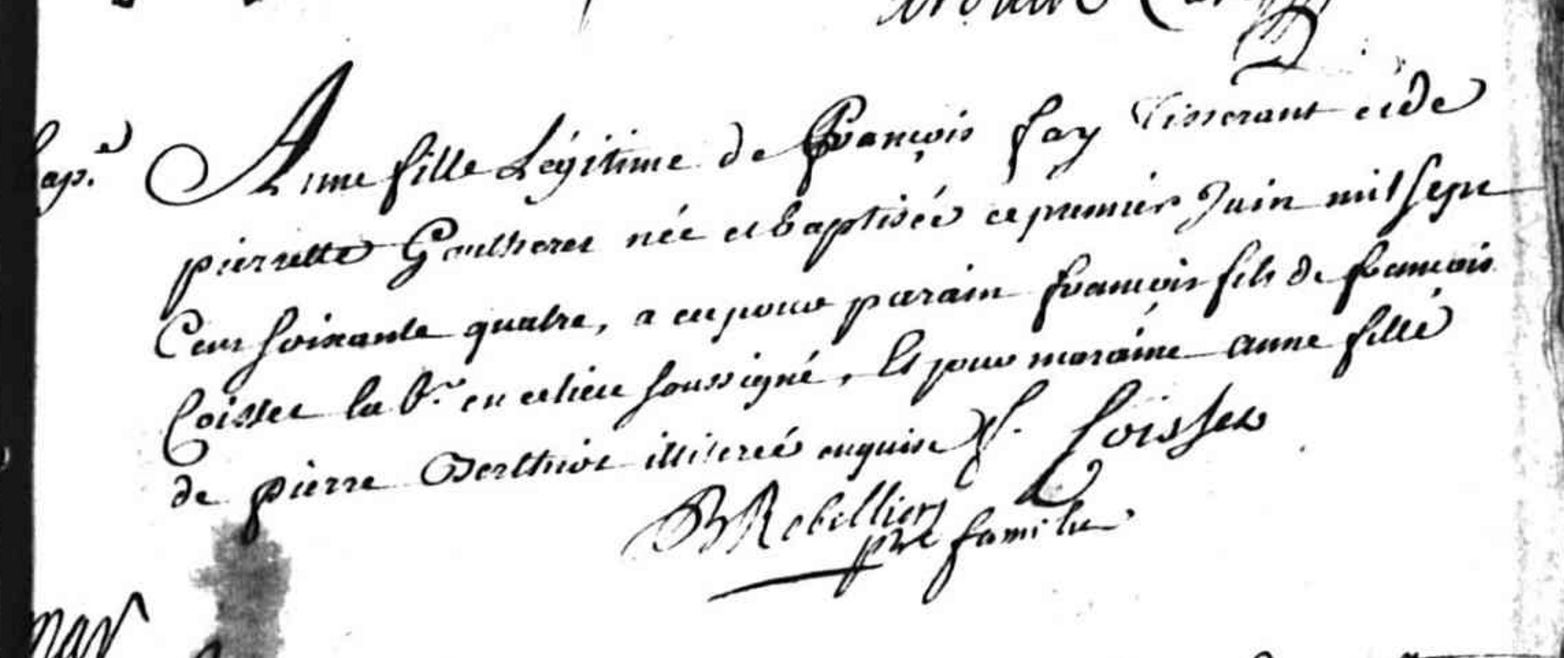 bap.e
Anne fille Légitime de François fay tisserant et de
pierrette Gautheret née et baptisée ce premier Juin mil sept
Cent soixante quatre, a eu pour parain françois fils de françois
Loisset lab.r en ce lieu soussigné, Et pour maraine anne fille
de pierre Berthiot illiterée enquise f. Loisset
B Rebellion
ptre famile
mar